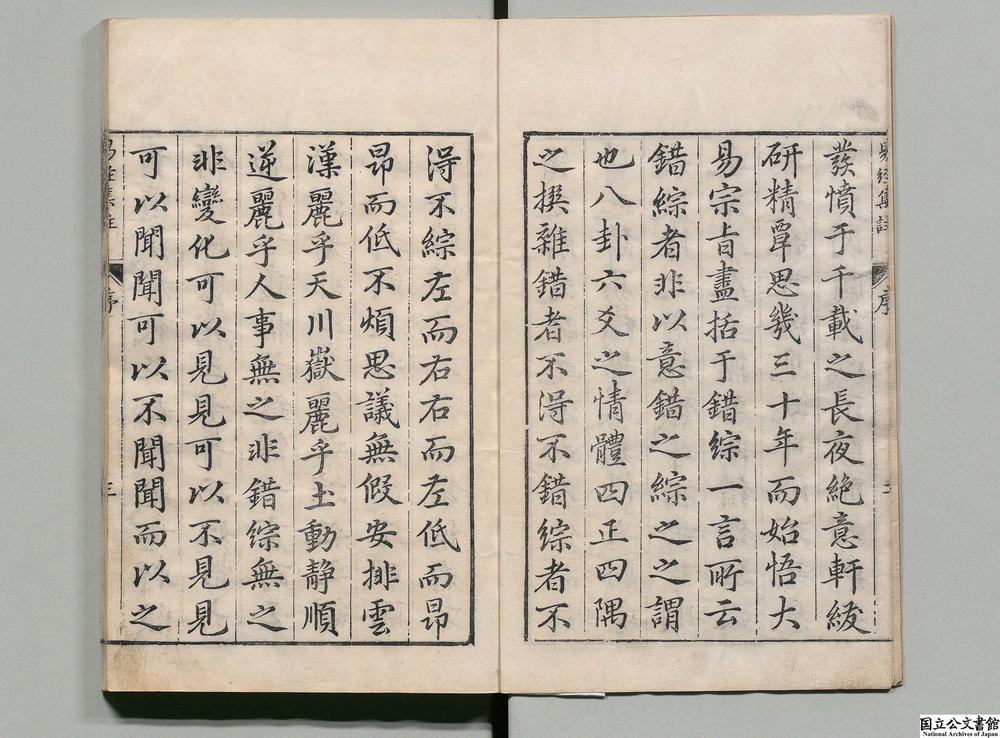 發憤于千載之長夜絶意軒紱
研精覃思幾三十年而始悟大
易宗旨盡括于錯綜一言所云
錯綜者非以意錯之綜之之謂
也八卦六爻之情體四正四隅
之撰雜錯者不淂不錯綜者不
淂不綜左而右右而左低而昂
昂而低不煩思議無假安排雲
漢麗乎天川嶽麗乎土動静順
逆麗乎人事無之非錯綜無之
非變化可以見見可以不見見
可以聞聞可以不聞聞而以之
易經集註
序
三
国立公文書館
National Archives of Japan